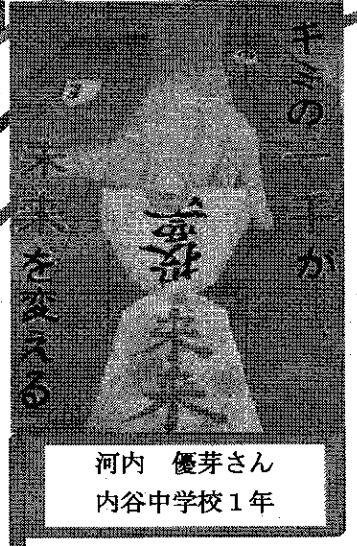 キミの一手が
未来を変える
投票
未来
河内　優芽さん
内谷中学校1年